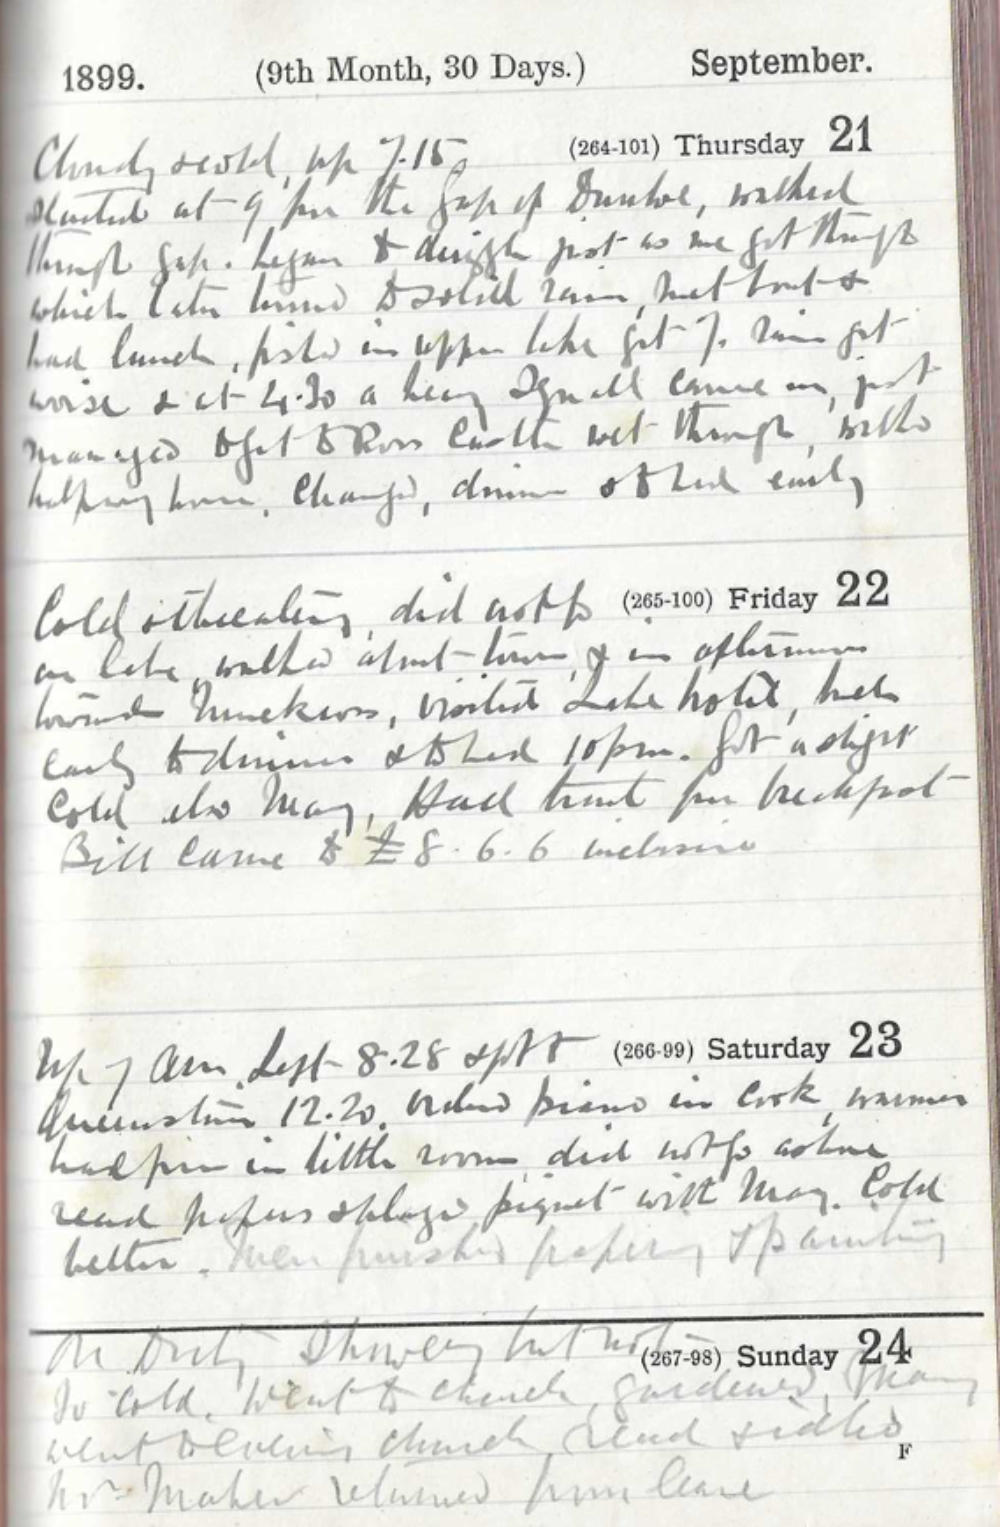 1899. (9th Month, 30 Days.) September.
(264-101) Thursday 21
Cloudy & cold, up 7.15,
started at 9 for the Gap of Dunloe, walked
through gap. began to drizzle just as we got through
which later turned to solid rain, met boat &
had lunch, fishd in upper lake got 7. rain got
worse & at 4.30 a heavy squall came on, just
managed to get to Ross Castle wet through, walkd
home, Changed, dinner & to bed early
(265-100) Friday 22
Cold & threatening, did not go
on lake, walked about town & in afternoon
towards Muckross, visited Lake hotel, back
early to dinner & to bed 10 pm. Got a slight
cold also May, Had trout for breakfast
Bill came to £8.6.6 inclusive
(266-99) Saturday 23
Up 7 am, Left 8.28 & got to
Queenstown 12.20, ordered piano in Cork, warmer
had fire in little room, did not go ashore
read papers & played piquet with May. Cold
better. Men finished papering & painting
(267-98) Sunday 24
On Duty Showery but not
so cold. Went to church, gardened, May
went to evening church, read & idled
Mr Maher returned from leave
F